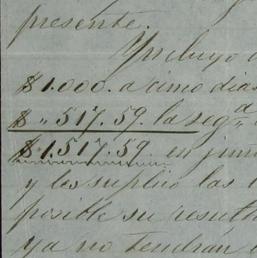 presente.
Yncluyo
$1.000. a cimo dias
$ " 517.59. la seg.ª
$ 1.517.59. en jun
y les suplico las
posible su resulta
ya no tendran